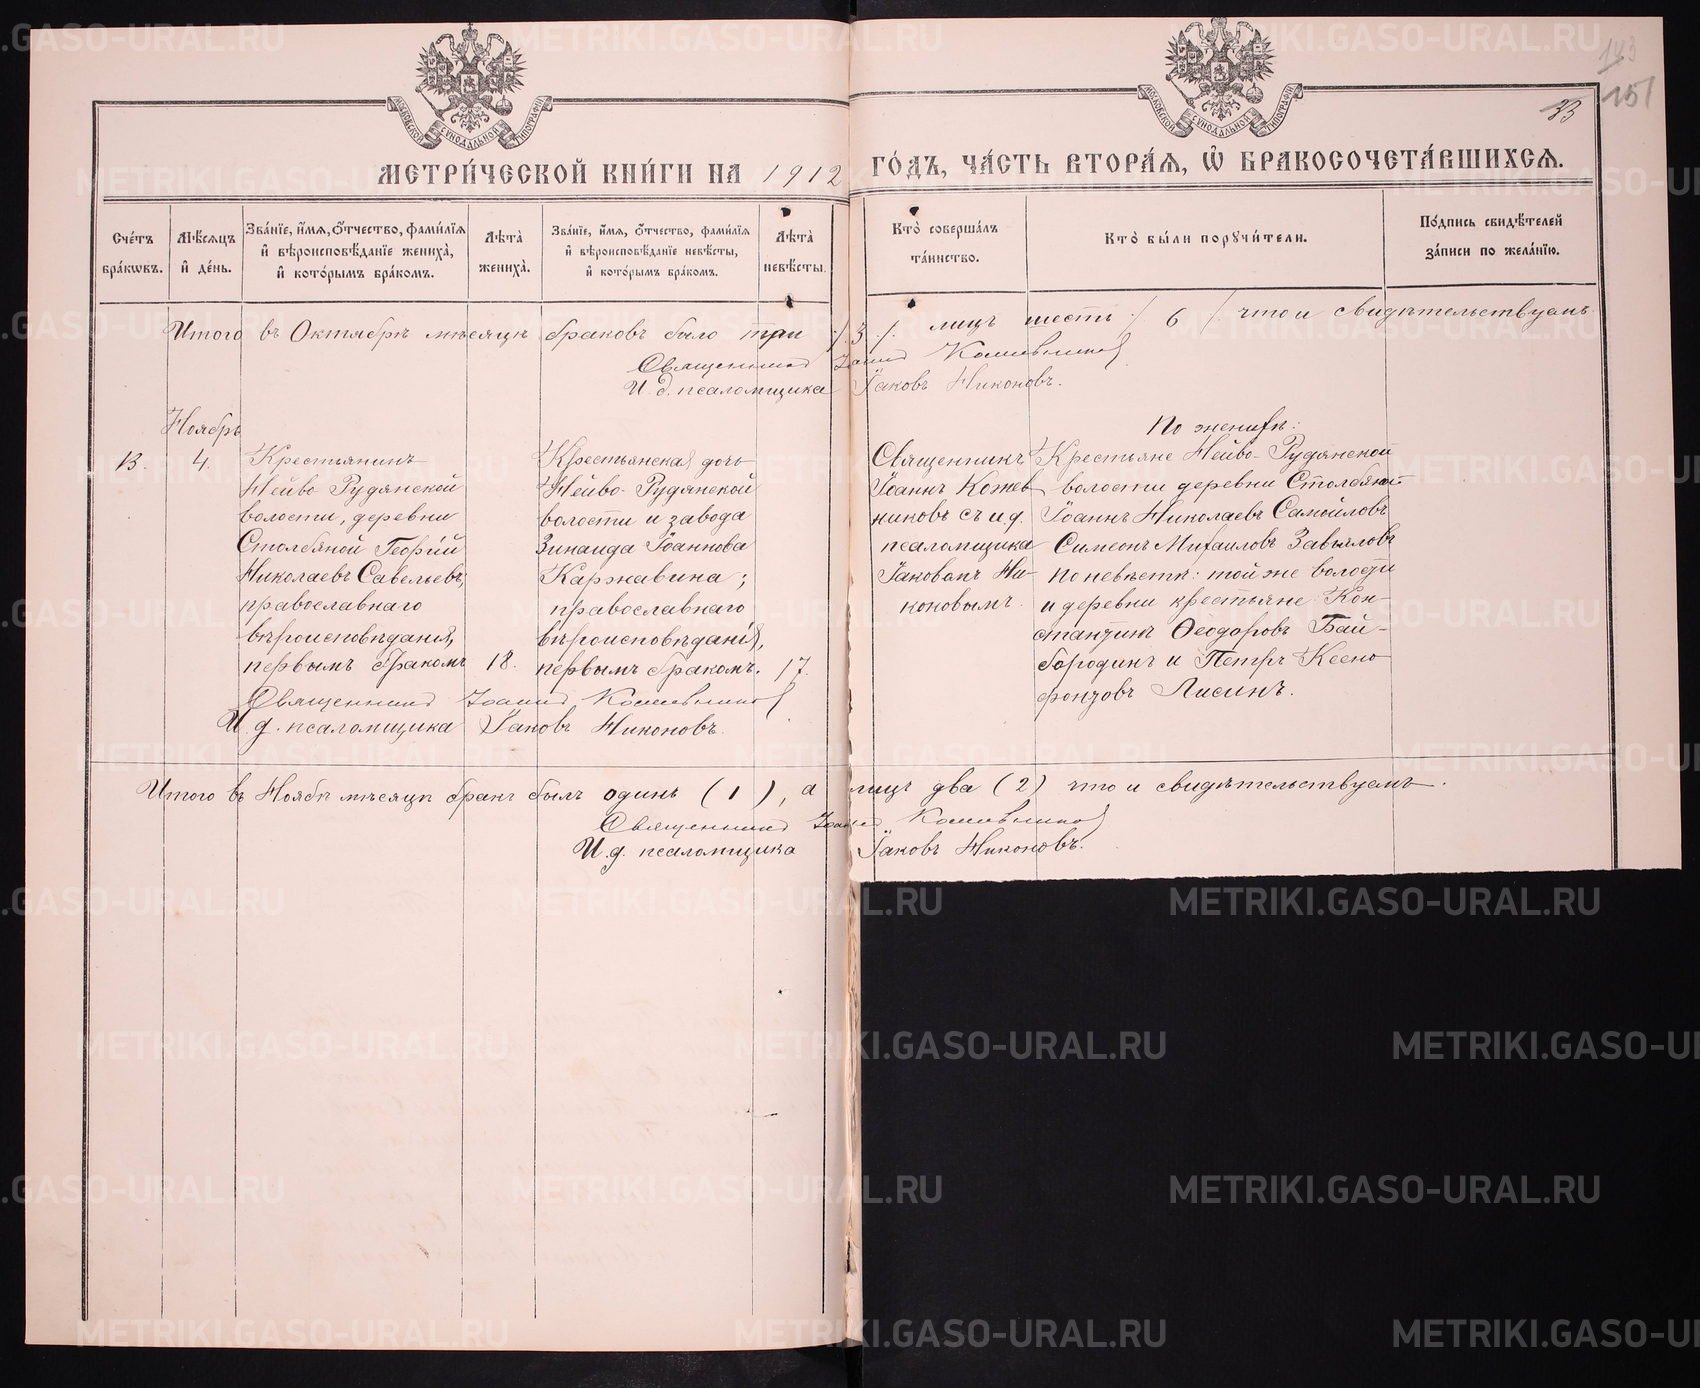 143
151
33
МОСКОВСКОЙ СѴНОДАЛЬНОЙ ТИПОГРАФІИ
МОСКОВСКОЙ СѴНОДАЛЬНОЙ ТИПОГРАФІИ
МЕТРИ́ЧЕСКОЙ КНИ́ГИ НА 1912 ГО́ДЪ, ЧА́СТЬ ВТОРА́Я, Ѽ БРАКОСОЧЕТА́ВШИХСЯ.
Сче́тъ
бра́кѡвъ.
Мѣ́сяцъ
и҆ де́нь.
Зва́нїе, и҆́мя, ѻ҆́тчество, фами́лїя
и҆ вѣроисповѣ́данїе жениха̀,
и҆ кото́рымъ бра́комъ.
Лѣта̀
жениха̀.
Зва́нїе, и҆́мя, ѻ҆́тчество, фами́лїя
и҆ вѣроисповѣ́данїе невѣ́сты,
и҆ кото́рымъ бра́комъ.
Лѣта̀
невѣ́сты.
Кто̀ соверша́лъ
та́инство.
Кто̀ бы́ли порꙋчи́тели.
По́дпись свидѣ́телей
за́писи по жела́нїю.
Итого въ Октябрѣ мѣсяцѣ браковъ было три /.3./. лицъ шесть /. 6 /. что и свидѣтельствуемъ
Священникъ Іоаннъ Кожевниковъ
И. д. псаломщика Іаковъ Никоновъ.
Ноябрь
13. 4.
Крестьянинъ
Нейво-Рудянской
волости, деревни
Столбяной Георгій
Николаевъ Савельевъ,
православнаго
вѣроисповѣданія,
первымъ бракомъ 18.
Крестьянская дочь
Нейво-Рудянской
волости и завода
Зинаида Іоаннова
Каржавина;
православнаго
вѣроисповѣданія,
первымъ бракомъ. 17.
Священникъ
Іоаннъ Кожев
никовъ съ и.д.
псаломщика
Іаковомъ Ни-
коновымъ.
По женихѣ:
Крестьяне Нейво-Рудянской
волости деревни Столбяной
Іоаннъ Николаевъ Самойловъ
Симеонъ Михаиловъ Завьяловъ
По невѣстѣ: той же волости
и деревни крестьяне Кон-
стантинъ Ѳеодоровъ Бай-
бородинъ и Петръ Ксено
фонтовъ Лисинъ.
Священникъ Іоаннъ Кожевниковъ
И. д. псаломщика Іаковъ Никоновъ.
Итого въ Ноябрѣ мѣсяцѣ бракъ былъ одинъ (1), а лицъ два (2) что и свидѣтельствуемъ.
Священникъ Іоаннъ Кожевниковъ
И. д. псаломщика Іаковъ Никоновъ.
METRIKI.GASO-URAL.RU